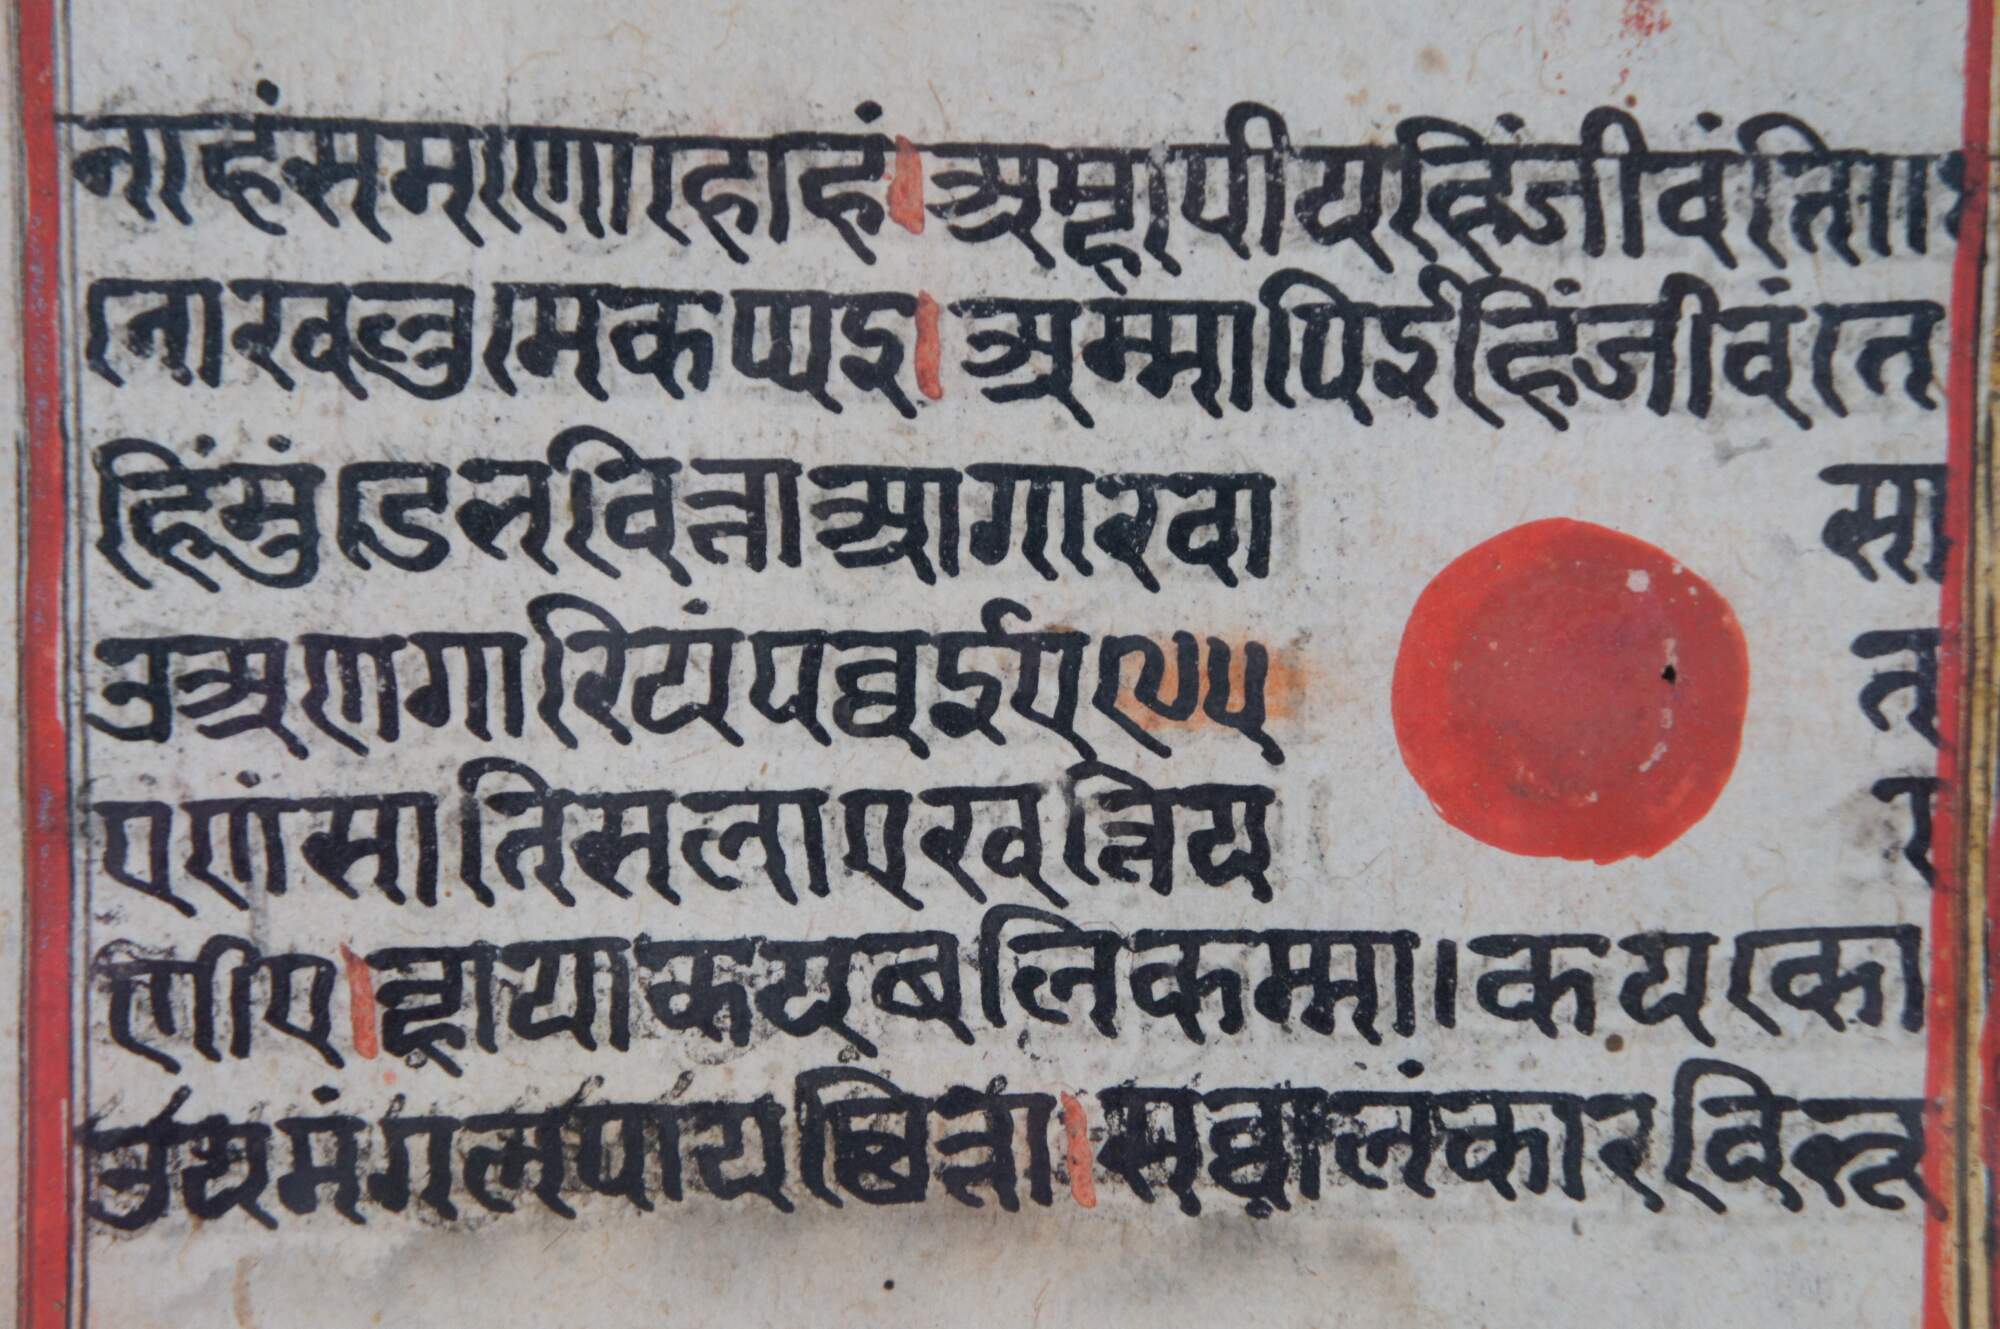 नाहं समाणो हाहं । अम्मापीयरेहिं जीवंतेहिं
नो खलु मे कप्पइ । अम्मापिईहिं जीवंते
हिं मुंडे भवित्ता आगारवा सा
उ अणगारियं पव्वईए ९५ त
एणं सा तिसला ए खत्तिय र
णीए । ह्राया कयबलिकम्मा । कयको
उयमंगलपायछित्ता । सव्वालंकारविभू